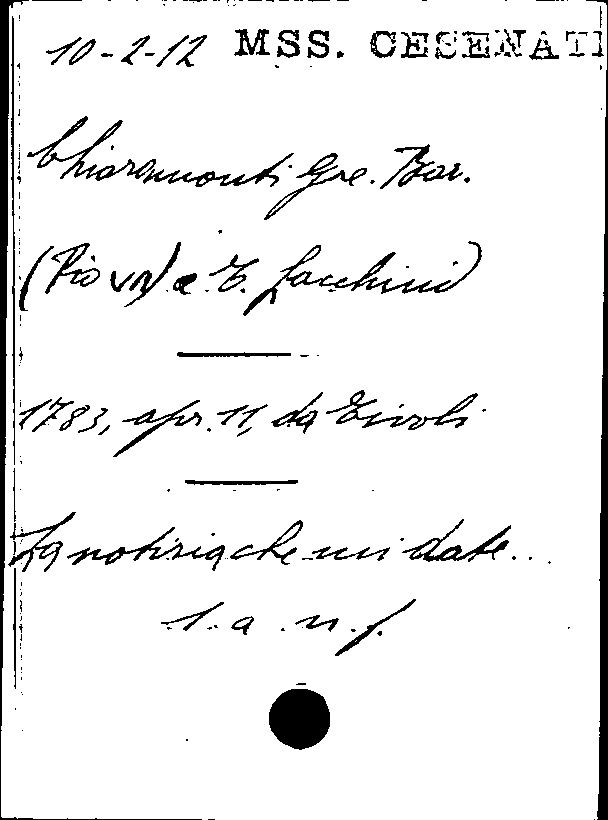 10-2-12 MSS. CESENATI
Chiaramonti Gre. Bar.
(Pio VII) a T. Zacchini
1783, apr. 11, da Tivoli
La notizia che mi date...
1. a. n. f.